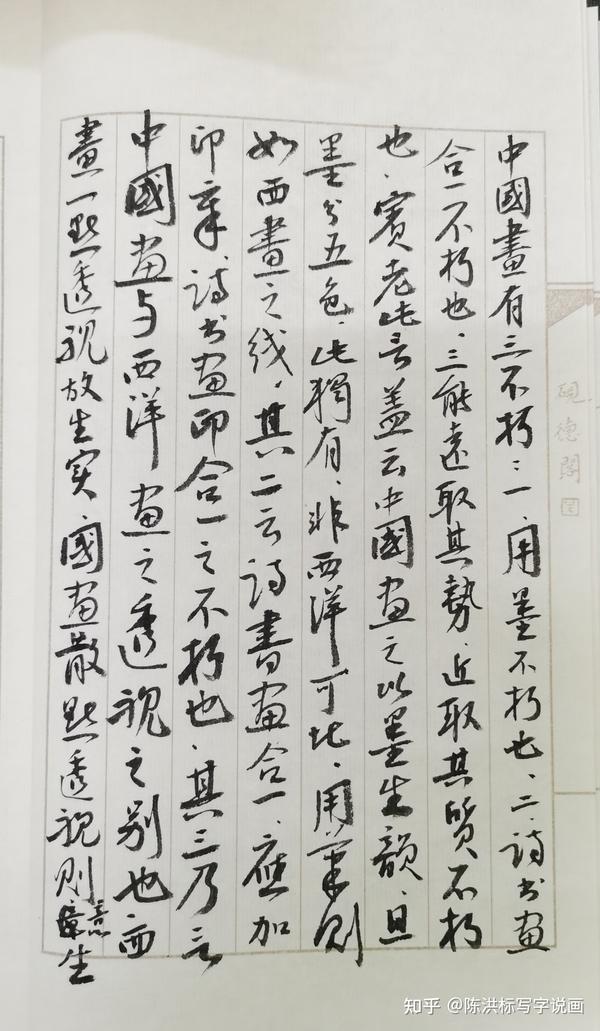 中國畫有三不朽：一、用墨不朽也、二、詩书画
合一不朽也、三能遠取其勢、近取其質不朽
也、賓老此言蓋云中國画之以墨生韻、且
墨分五色、此獨有、非西洋可比、用筆则
如西畫之线、其二云诗書画合一、應加
印章、诗书画印合一之不朽也、其三乃言
中國画与西洋画之透视之别也、西
畫一點透视故生实、國画散點透视则意生
硯德閣
知乎 @陈洪标写字说画